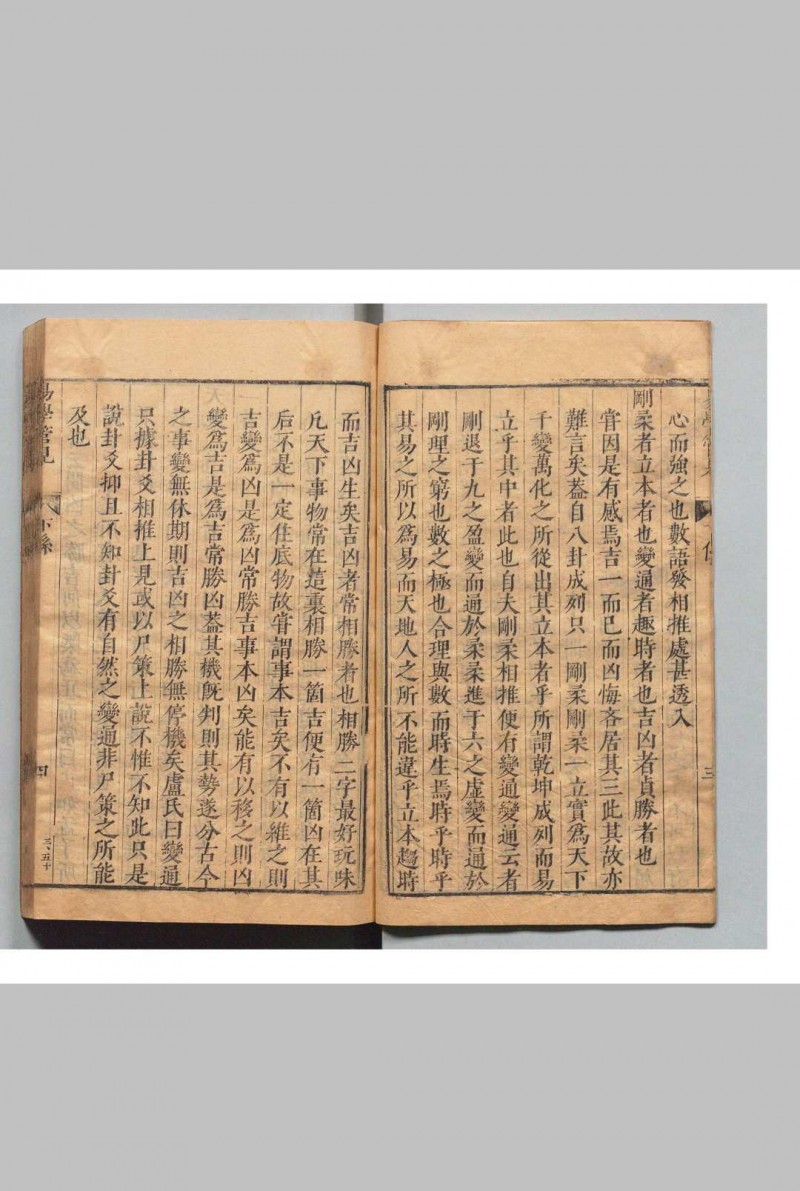 心而強之也數語發相推處甚透入
剛柔者立本者也變通者趣時者也吉凶者貞勝者也
甞因是有感焉吉一而已而凶悔吝居其三此其故亦
難言矣葢自八卦成列只一剛柔剛柔一立實爲天下
千變萬化之所從出其立本者乎所謂乾坤成列而易
立乎其中者此也自夫剛柔相推便有變通變通云者
剛退于九之盈變而通於柔柔進于六之虛變而通於
剛理之窮也數之極也合理與數而時生焉時乎時乎
其易之所以爲易而天地人之所不能違乎立本趨時
三
而吉凶生矣吉凶者常相勝者也相勝二字最好玩味
凡天下事物常在這裏相勝一箇吉便有一箇凶在其
后不是一定住底物故甞謂事本吉矣不有以維之則
吉變爲凶是爲凶常勝吉事本凶矣能有以移之則凶
變爲吉是爲吉常勝凶葢其機既判則其勢遂分古今
之事變無休期則吉凶之相勝無停機矣盧氏曰變通
只據卦爻相推上見或以尸策上說不惟不知此只是
說卦爻抑且不知卦爻有自然之變通非尸策之所能
及也
易學管見 下繫 四